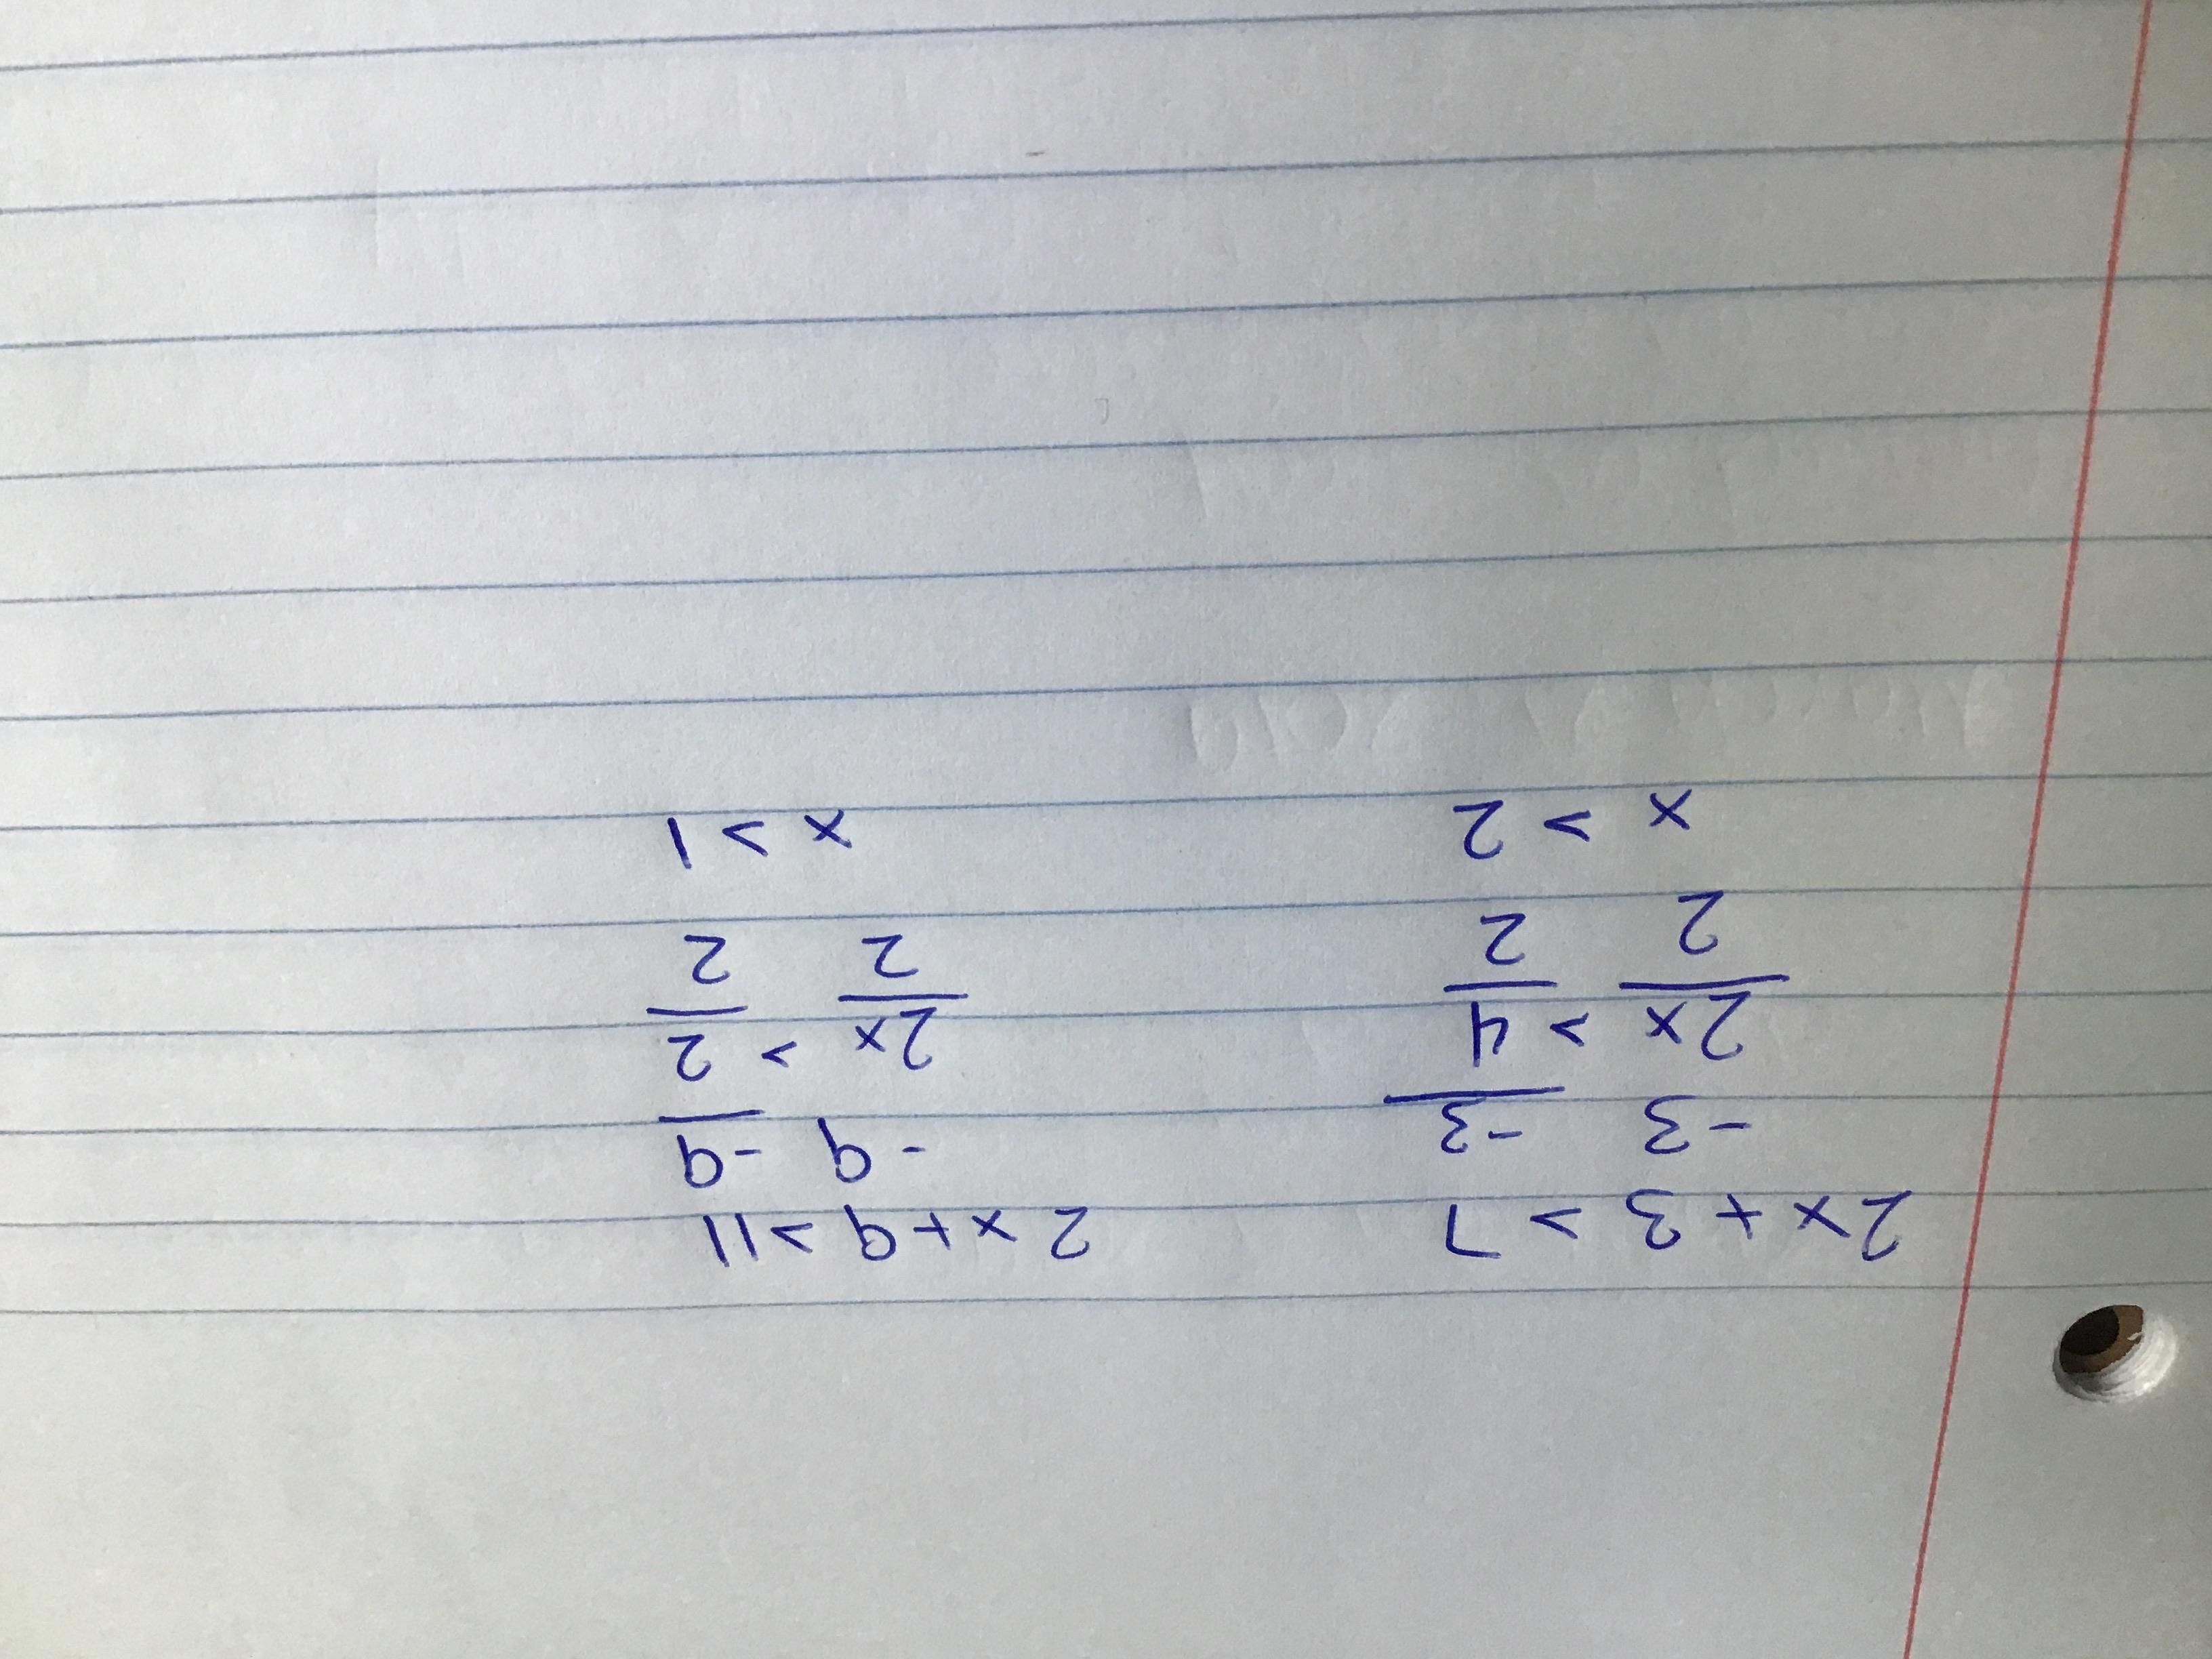 2x + 3 > 7
-3 -3
2x > 4
2 2
x > 2
2x + 9 > 11
-9 -9
2x > 2
2 2
x > 1